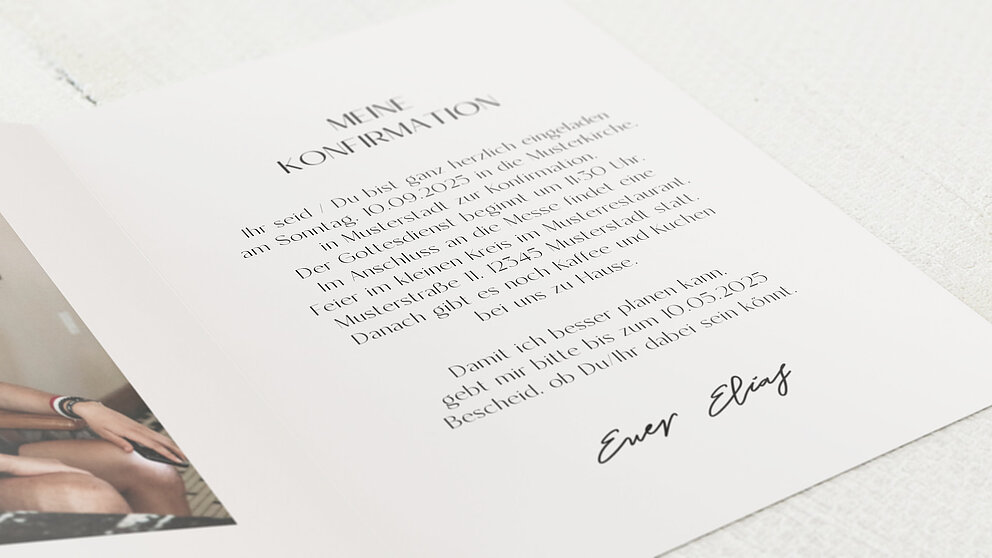 MEINE
KONFIRMATION
Ihr seid / Du bist ganz herzlich eingeladen
am Sonntag, 10.09.2025 in die Musterkirche,
in Musterstadt zur Konfirmation.
Der Gottesdienst beginnt um 11:30 Uhr.
Im Anschluss an die Messe findet eine
Feier im kleinen Kreis im Musterrestaurant,
Musterstraße 11, 12345 Musterstadt statt.
Danach gibt es noch Kaffee und Kuchen
bei uns zu Hause.
Damit ich besser planen kann,
gebt mir bitte bis zum 10.05.2025
Bescheid, ob Du/Ihr dabei sein könnt.
Euer Elias